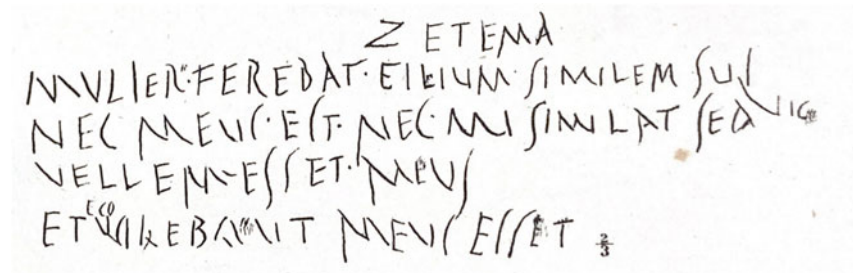 ZETEMA
MVLIER·FEREBAT·FILIVM·SIMILEM SVI
NEC MEVS·EST·NEC·MI SIMILAT SED
VELLEM·ESSET·MEVS
ET EGO VOLEBAM VT MEVS ESSET 2/3